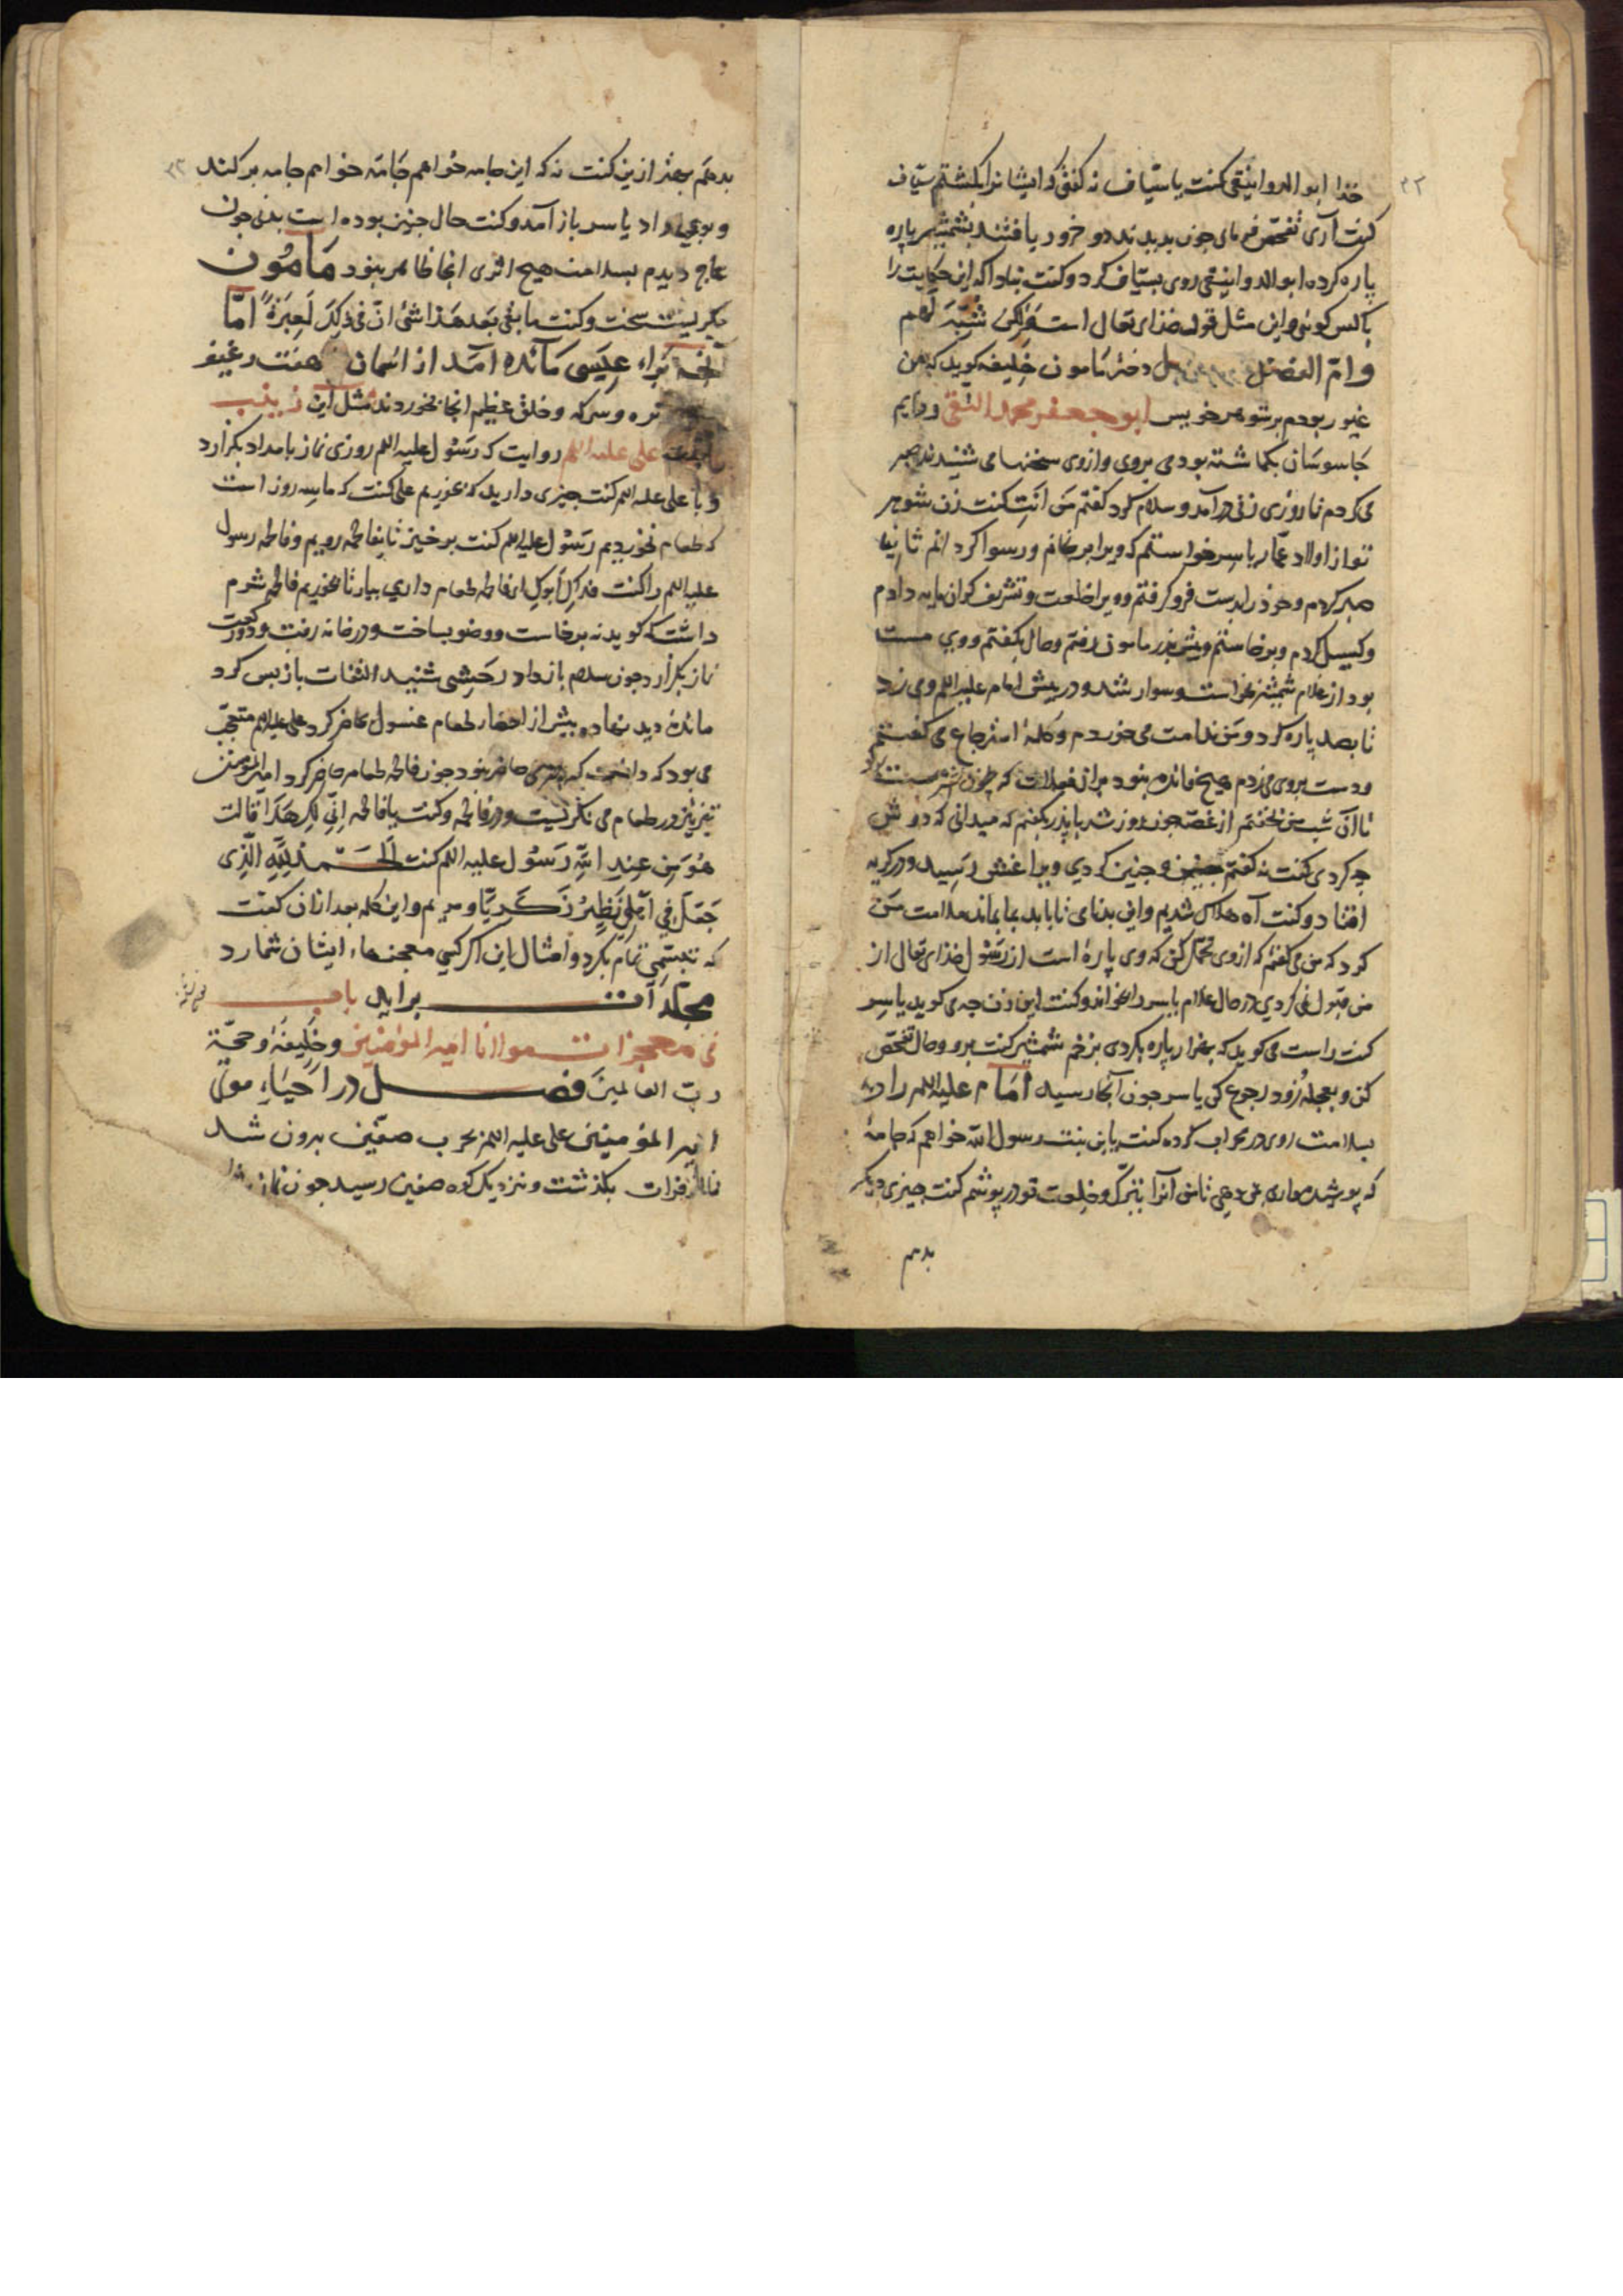 ۳۲
خذا ابو الدوانیقی کفت یا سیاف نه کفتی که ایشانرا بکشتم سیاف
کفت آری تفحص فرمای چون بدیدند دو خرور یافتند بشمشیر پاره
پاره کرده ابو الدوانیقی روی بسیاف کرد و کفت نباداکه این حکایت را
باکس کوئی و این مثل قول خذای تعالی است ولکن شبه لهم
وام الفضل دختر مامون خلیفه کوید که من
غیور بودم بر شوهر خویس ابو جعفر محمد التقی و دایم
جاسوسان بکماشته بودمی بروی و ازوی سخنها می شنیدند صبر
می کردم تا روزی زنی در آمد و سلام کرد کفتم من انت کفت زن شوهر
تو از اولاد عمار یاسر خواستم که ویرا برنجانم و رسوا کردانم ثانیا
صبر کردم و خوذ را بدست فرو کرفتم و ویرا خلعت و تشریف کران مایه دادم
و کسیل کردم و برخاستم و پیش پذر مامون رفتم و حال بکفتم و وی مست
بود از غلام شمشیر بخواست و سوار شد و در پیش امام علیه السلم وی زد
تا بصد پاره کرد و من ندامت می خوردم و کلمه استرجاع می کفتم
ودست بروی می زدم هیچ فائده نبود
تا آن شب من نخفتم از غصه چون روز شد با پذر بکفتم که میدانی که دوش
چه کردی کفت نه کفتم چنین و چنین کردی ویرا غش رسید و در کریه
افتاد و کفت آه هلاک شدیم و این بدنامی تا باید بما بماند ملامت من
کرد که من می کفتم که ازوی تحمل کن که وی پاره است از رسول خذای تعالی از
من قبول نمی کردی در حال غلام یاسر را بخواند و کفت این زن چه می کوید یاسر
کفت راست می کوید که بهزار پاره بکردی بزخم شمشیر کفت برو و حال تفحص
کن و بعجله زود رجوع کن یاسر چون آنجا رسید امام علیه السلم را دید
بسلامت روی در محراب کرده کفت یا بن بنت رسول الله خواهم که جامه
که پوشیده داری بمن دهی تا من آنرا بتبرک و خلعت تو در پوشم کفت چیزی دیکر
بدهم
۳۲
بدهم بهتر ازین کفت نه که این جامه خواهم جامه خواهم جامه بر کند
و بوی داد یاسر باز آمد و کفت حال چنین بوده است بدنی چون
عاج دیدم بسلامت هیچ اثری انجا ظاهر نبود مامون
بکریست سخت و کفت ما بقی بعد هذا شئ ان فی ذلک لعبرة اما
آنچه برای عیسی مائده آمد از اسمان هفت رغیف
تره و سرکه و خلق عظیم انجا بخوردند مثل این زینب
علی علیه السلم روایت که رسول علیه السلم روزی نماز بامداد بکزارد
و با علی علیه السلم کفت چیزی دارید که بخوریم علی کفت که ما سه روز است
که طعام نخوردیم رسول علیه السلم کفت برخیز تا بفاطمه رویم و فاطمه رسول
علیه السلم را کفت فداک ابوک ای فاطمه طعام داری بیار تا بخوریم فاطمه شرم
داشت که کوید نه برخاست و وضو بساخت و در خانه رفت و دو رکعت
نماز بکزارد چون سلام باز داد رحسی شنید التفات باز پس کرد
مائده دید نهاده پیش از احضار طعام عنسول حاضر کرد علی علیه السلم متعجب
می بود که دانست که چیزی حاضر نبود چون فاطمه طعام حاضر کرد امیر المؤمنین
تیز تیز در طعام می نکریست و در فاطمه و کفت یا فاطمه انی لک هذا قالت
هو من عند الله رسول علیه السلم کفت الحمد لله الذی
جعل فی اهلی نظیر زکریا و مریم و این کلمه بعد از ان کفت
که تبسمی تمام بکرد و امثال این اکر کسی معجزهاء ایشان شمارد
مجلدات براید باب
فی معجزات مولانا امیر المؤمنین و خلیفة و حجة
رب العالمین فصل در احیاء موتی
امیر المؤمنین علی علیه السلم بحرب صفین برون شد
تا از فرات بکذشت و نزدیک کوه صفین رسید چون نماز شام